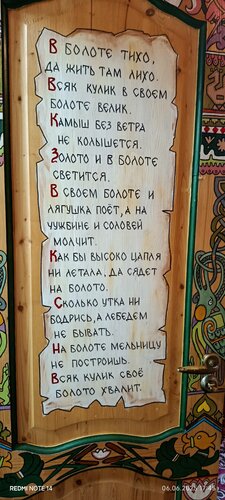 В БОЛОТЕ ТИХО,
ДА ЖИТЬ ТАМ ЛИХО.
ВСЯК КУЛИК В СВОЕМ
БОЛОТЕ ВЕЛИК.
КАМЫШ БЕЗ ВЕТРА
НЕ КОЛЫШЕТСЯ.
ЗОЛОТО И В БОЛОТЕ
СВЕТИТСЯ.
В СВОЕМ БОЛОТЕ И
ЛЯГУШКА ПОЁТ, А НА
ЧУЖБИНЕ И СОЛОВЕЙ
МОЛЧИТ.
КАК БЫ ВЫСОКО ЦАПЛЯ
НИ ЛЕТАЛА, ДА СЯДЕТ
НА БОЛОТО.
СКОЛЬКО УТКА НИ
БОДРИСЬ, А ЛЕБЕДЕМ
НЕ БЫВАТЬ.
НА БОЛОТЕ МЕЛЬНИЦУ
НЕ ПОСТРОИШЬ.
ВСЯК КУЛИК СВОЁ
БОЛОТО ХВАЛИТ.
REDMI NOTE 14